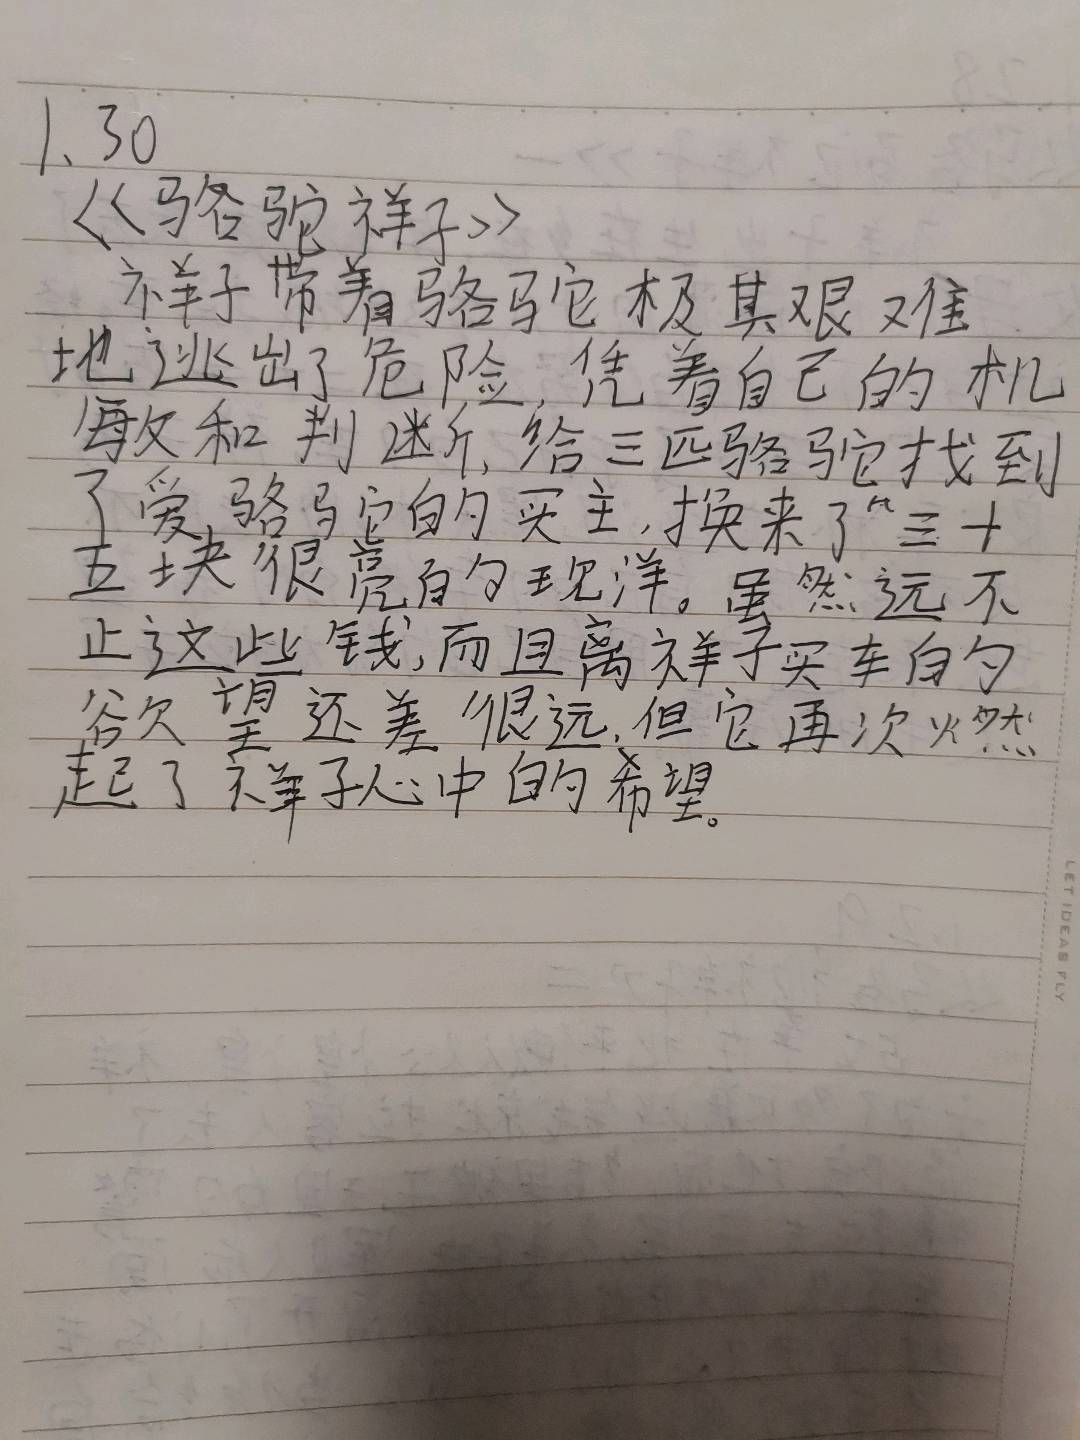 1、30
《骆驼祥子》
祥子带着骆驼极其艰难
地逃出了危险,凭着自己的机
敏和判断,给三匹骆驼找到
了爱骆驼的买主,换来了“三十
五块很亮的现洋。虽然远不
止这些钱,而且离祥子买车的
欲望还差很远,但它再次燃
起了祥子心中的希望。
LET IDEAS FLY